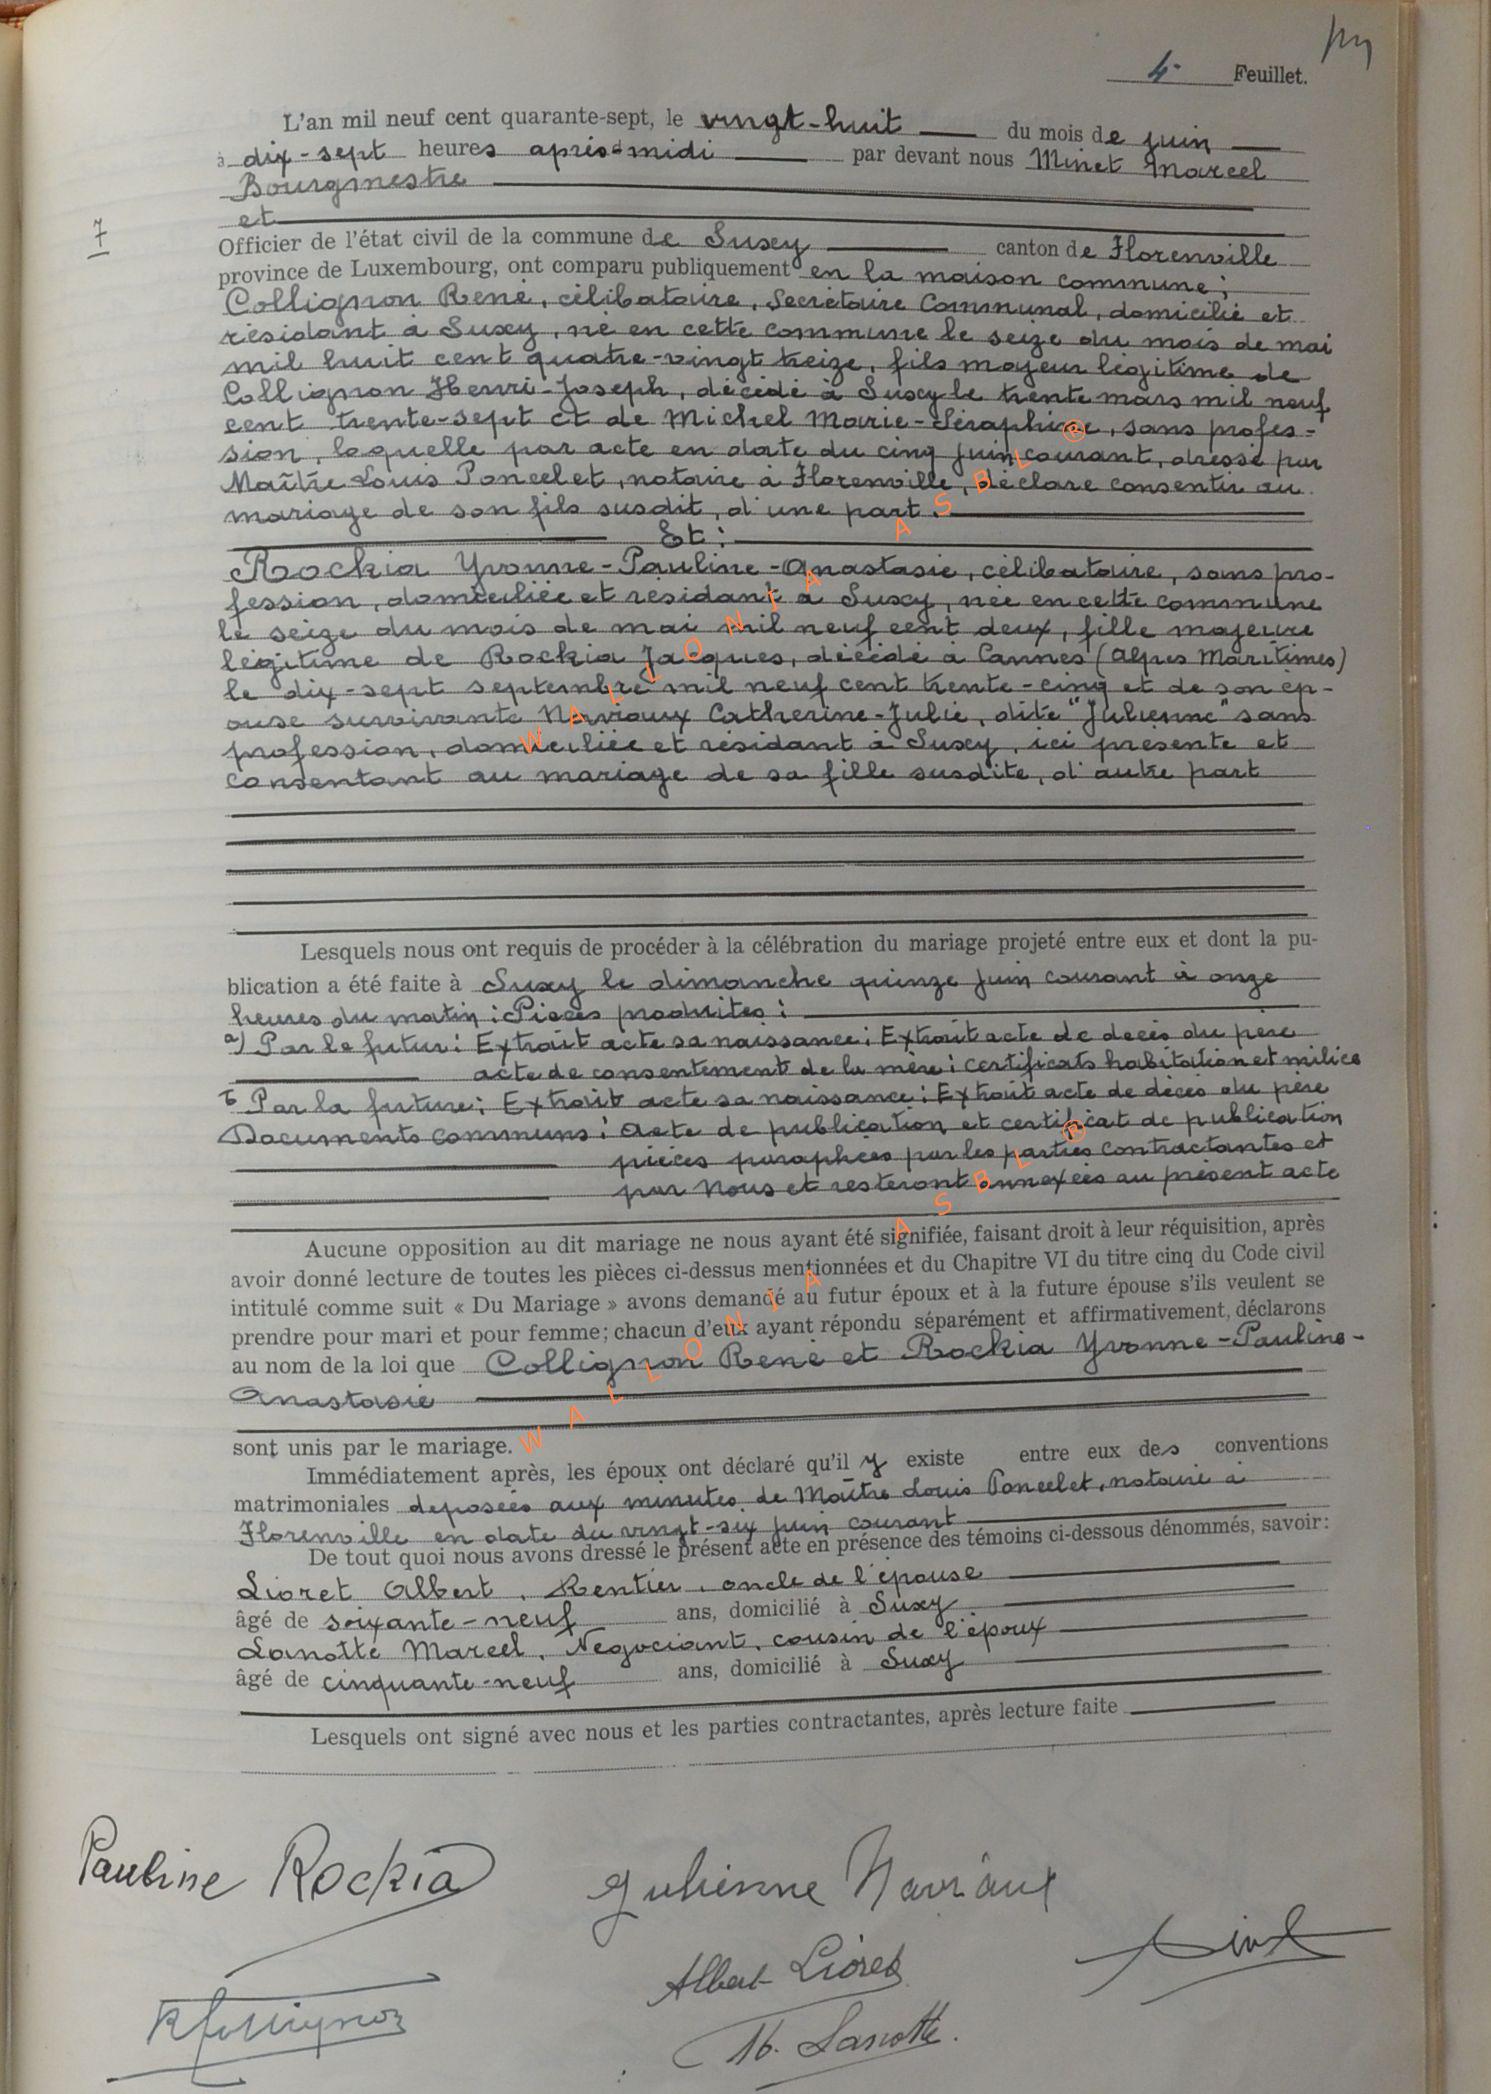 4 Feuillet.
L'an mil neuf cent quarante-sept, le vingt-huit du mois de juin
à dix-sept heures après-midi par devant nous Minet Marcel
Bourgmestre
et
7
Officier de l'état civil de la commune de Suxy canton de Florenville
province de Luxembourg, ont comparu publiquement en la maison commune;
Collignon René, célibataire, Secrétaire Communal, domicilié et
résidant à Suxy, né en cette commune le seize du mois de mai
mil huit cent quatre-vingt treize, fils majeur légitime de
Collignon Henri-Joseph, décédé à Suxy le trente mars mil neuf
cent trente-sept et de Michel Marie-Séraphine, sans profes-
sion, laquelle par acte en date du cinq juin courant, dressé par
Maître Louis Poncelet, notaire à Florenville, déclare consentir au
mariage de son fils susdit, d'une part.
Et:
Rockia Yvonne-Pauline-Anastasie, célibataire, sans pro-
fession, domiciliée et résidant à Suxy, née en cette commune
le seize du mois de mai mil neuf cent deux, fille majeure
légitime de Rockia Jacques, décédé à Cannes (Alpes Maritimes)
le dix-sept septembre mil neuf cent trente-cinq et de son ép-
ouse survivante Navioux Catherine-Julie, dite "Julienne" sans
profession, domiciliée et résidant à Suxy, ici présente et
consentant au mariage de sa fille susdite, d'autre part
Lesquels nous ont requis de procéder à la célébration du mariage projeté entre eux et dont la pu-
blication a été faite à Suxy le dimanche quinze juin courant à onze
heures du matin; Pièces produites:
a) Par le futur: Extrait acte sa naissance; Extrait acte de décès du père
acte de consentement de la mère; certificats habitation et milice
b Par la future: Extrait acte sa naissance; Extrait acte de décès du père
Documents communs: acte de publication et certificat de publication
pièces paraphées par les parties contractantes et
par Nous et resteront annexées au présent acte
Aucune opposition au dit mariage ne nous ayant été signifiée, faisant droit à leur réquisition, après
avoir donné lecture de toutes les pièces ci-dessus mentionnées et du Chapitre VI du titre cinq du Code civil
intitulé comme suit « Du Mariage » avons demandé au futur époux et à la future épouse s'ils veulent se
prendre pour mari et pour femme; chacun d'eux ayant répondu séparément et affirmativement, déclarons
au nom de la loi que Collignon René et Rockia Yvonne-Pauline-
Anastasie
sont unis par le mariage.
Immédiatement après, les époux ont déclaré qu'il y existe entre eux des conventions
matrimoniales déposées aux minutes de Maître Louis Poncelet, notaire à
Florenville en date du vingt-six juin courant
De tout quoi nous avons dressé le présent acte en présence des témoins ci-dessous dénommés, savoir:
Lioret Albert, Rentier, oncle de l'épouse
âgé de soixante-neuf ans, domicilié à Suxy
Lanotte Marcel, Négociant, cousin de l'époux
âgé de cinquante-neuf ans, domicilié à Suxy
Lesquels ont signé avec nous et les parties contractantes, après lecture faite
Pauline Rockia Julienne Naviaux
Albert Lioret
R Collignon
M. Lanotte.
WALLONIA ASBL ®
WALLONIA ASBL ®